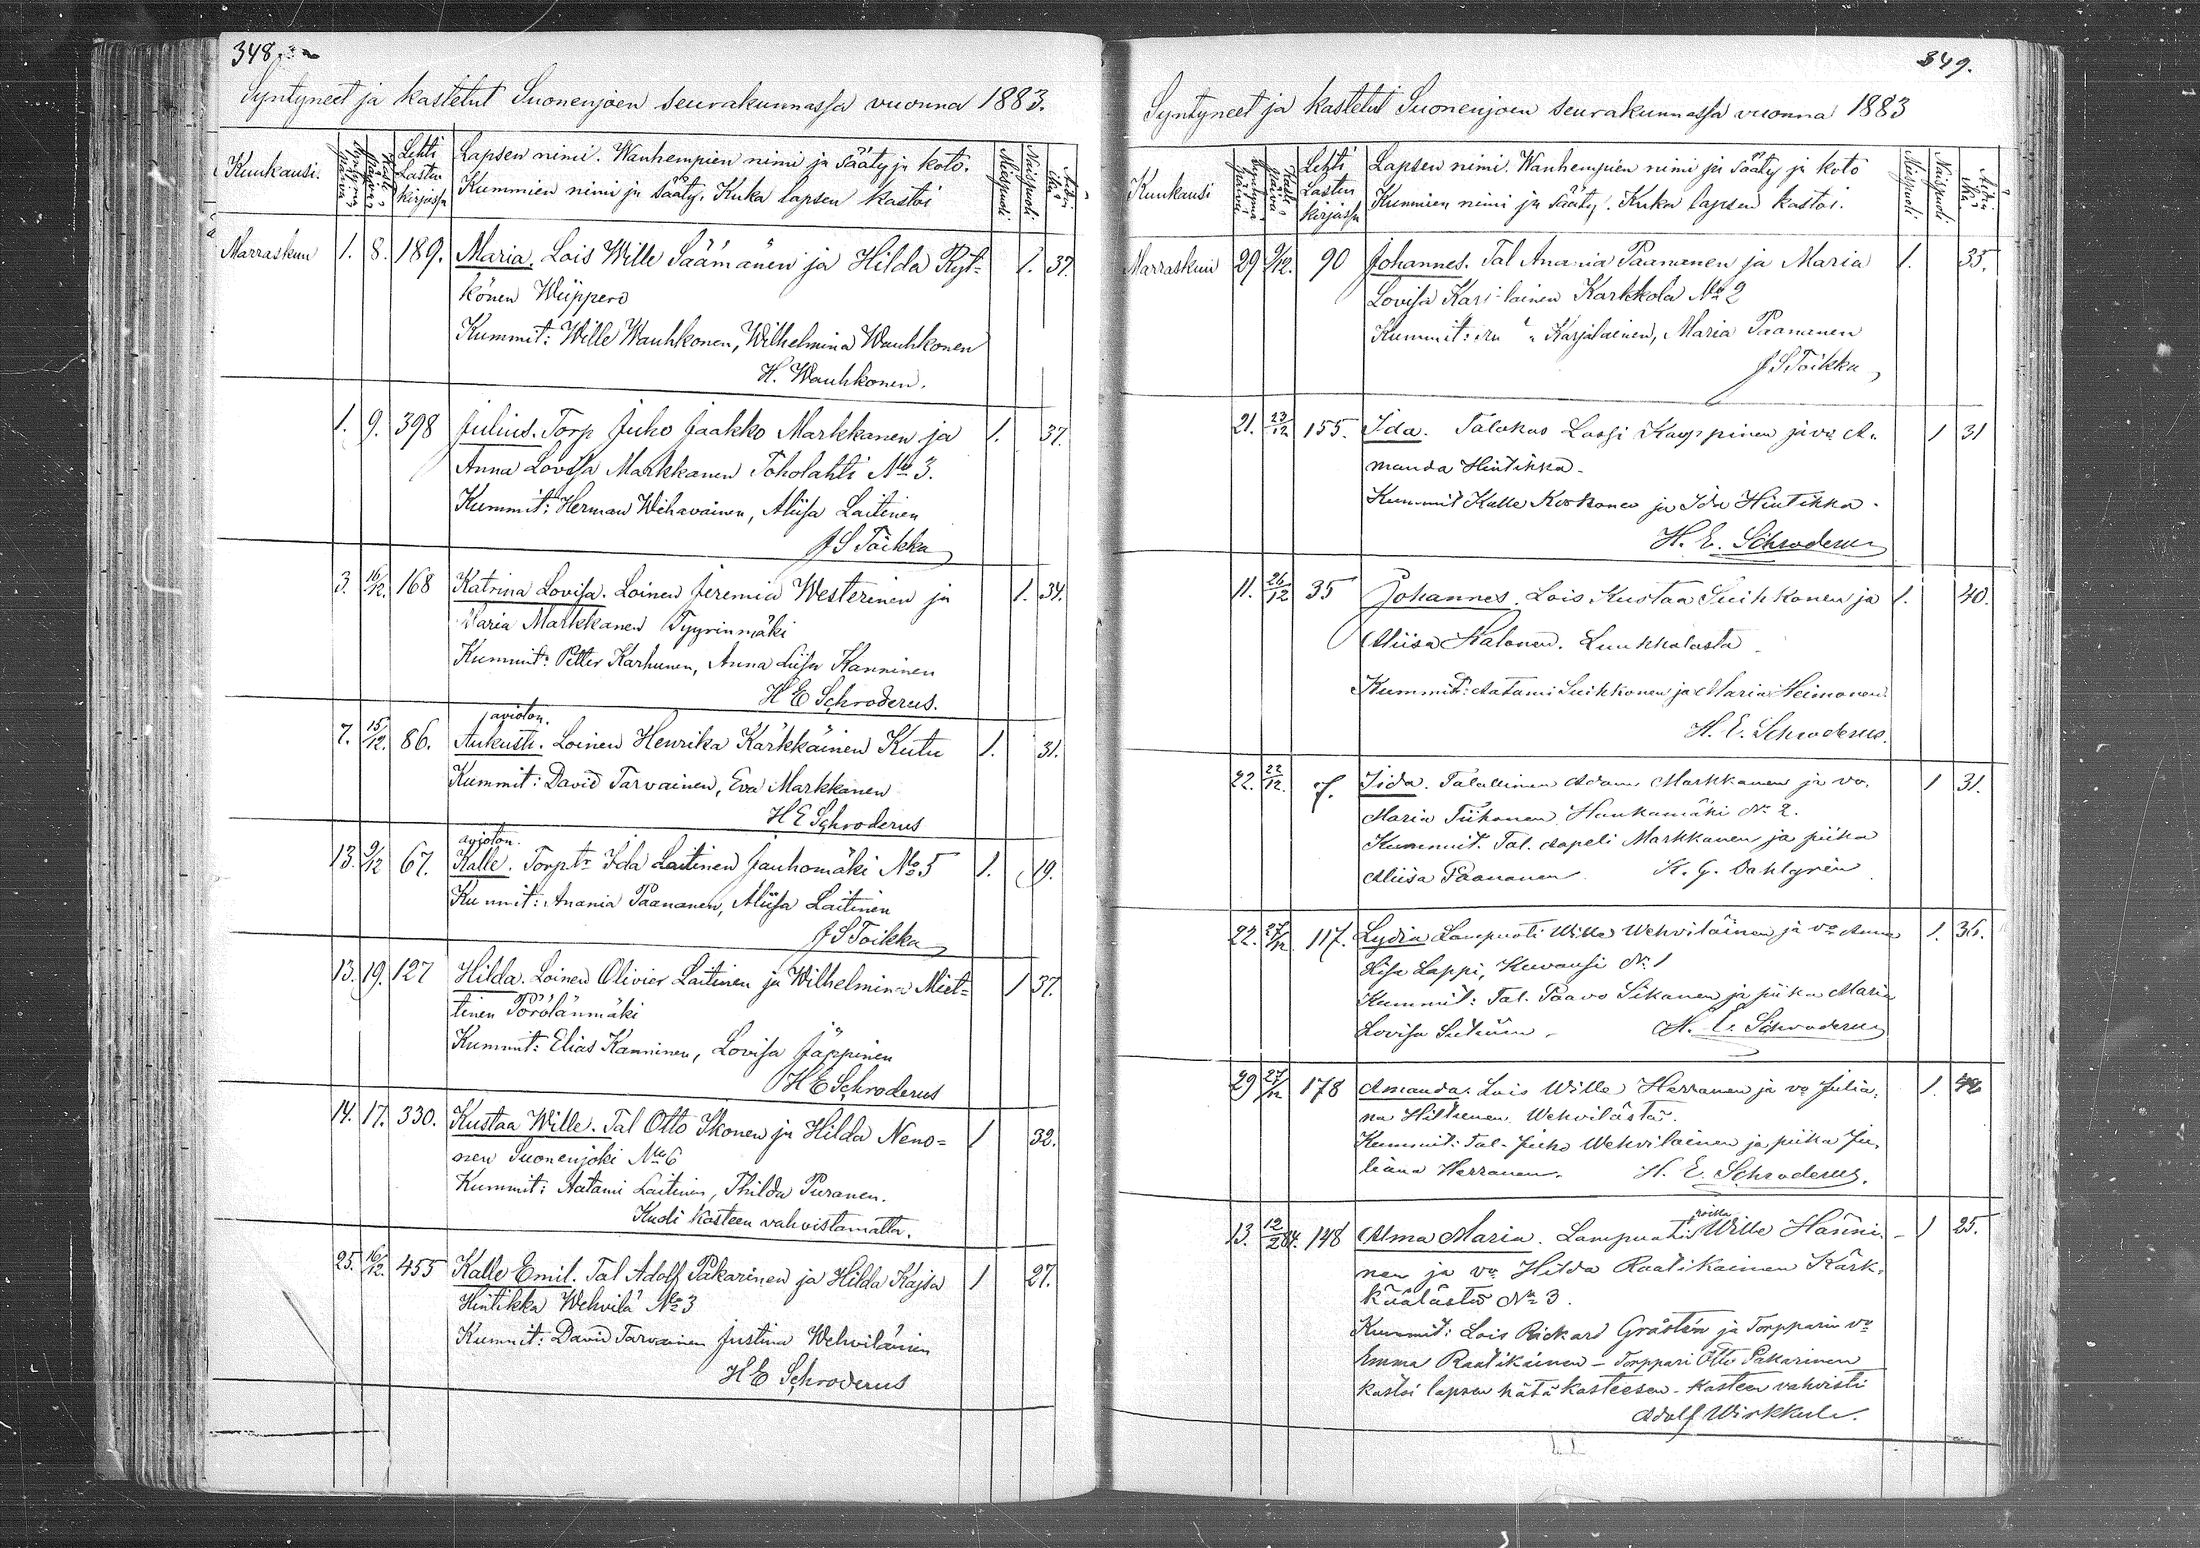 348.
Syntyneet ja kastetut Suonenjoen seurakunnassa vuonna 1883.
Kuukausi.
Lehti Lasten kirjassa
Lapsen nimi. Wanhempien nimi ja sääty ja koto.
Kummien nimi ja sääty. Kuka lapsen kastoi
Miespuoli. Naispuoli. Äidin ikä.
Marraskuu 1. 8. 189. Maria. Lois Wille Säämänen ja Hilda Ryt= 1. 37.
könen Wiippero
Kummit: Wille Wauhkonen, Wilhelmina Wauhkonen
H. Wauhkonen.
1. 9. 398 Julius. Torp Juho Jaakko Markkanen ja 1. 37.
Anna Lovisa Markkanen Toholahti No 3.
Kummit: Herman Wihavainen, Aliisa Laitinen
J S Toikka
3. 16/12. 168 Katrina Lovisa. Loinen Jeremia Westerinen ja 1. 34.
Maria Markkanen Tyyrinmäki
Kummit: Petter Karhunen, Anna Liisa Kanninen
H E Schroderus.
avioton.
7. 15/12. 86. Aukusti. Loinen Henrika Kärkkäinen Kutu 1. 31.
Kummit: David Tarvainen, Eva Markkanen
H E Schroderus
avioton.
13. 9/12 67. Kalle. Torp tr Ida Laitinen Jauhomäki No 5 1. 19.
Ku mit: Anania Paananen, Aliisa Laitinen
J S Toikka
13. 19. 127 Hilda. Loinen Olivier Laitinen ja Wilhelmina Miet= 1 37.
tinen Pörölänmäki
Kummit: Elias Kanninen, Lovisa Jäppinen
H E Schroderus
14. 17. 330. Kustaa Wille. Tal Otto Ikonen ja Hilda Neno= 1 32.
nen Suonenjoki No 6
Kummit: Aatami Laitinen, Thilda Puranen.
Kuoli kasteen vahvistamatta.
25. 16/12. 455 Kalle Emil. Tal Adolf Pakarinen ja Hilda Kajsa 1 27.
Hintikka Wehvilä No 3
Kummit: David Tarvainen Justina Wehviläinen
H E Schroderus
349.
Syntyneet ja kastetut Suonenjoen seurakunnassa vuonna 1883
Kuukausi
Lehti Lasten kirjassa
Lapsen nimi. Wanhempien nimi ja sääty ja koto
Kummien nimi ja sääty. Kuka lapsen kastoi.
Miespuoli. Naispuoli. Äidin ikä
Marraskuu 29 9/12. 90 Johannes. Tal Anania Paananen ja Maria 1. 35.
Lovisa Karjalainen Karkkola No 2
Kummit: Karjalainen, Maria Paananen
J S Toikka
21. 23/12 155. Ida. Talokas Lassi Kauppinen ja vo A. 1 31
manda Hintikka.
Kummit Kalle Korhonen ja Ida Hintikka.
H. E. Schroderus
11. 26/12 35 Johannes. Lois Kustaa Suihkonen ja 1. 40.
Aliisa Halonen. Luukkolasta.
Kummit: Aatami Suihkonen ja Maria Heimonen.
H. E. Schroderus.
22. 22/12. Iida. Talallinen Adam Markkanen ja vo. 1 31.
Maria Tiihonen Haukamäki No 2.
Kummit. Tal. Aapeli Markkanen ja piika
Aliisa Paananen. K. G. Dahlgrén
22. 27/12. 117. Lydia Lampuoti Wille Wehviläinen ja vo Anna 1. 36.
Liisa Lappi, Kuvansi No 1
Kummit: Tal. Paavo Sikanen ja piika Maria
Lovisa H. E. Schroderus
29 27/12 178 Amanda. Lois Wille Herranen ja vo Julia. 1.
na Hiltunen Wehvilästä.
Kummit: Tal. Juho Wehviläinen ja piika Ju.
liana Herranen. H. E. Schroderus.
13. 12/2 84. 148 Alma Maria. Lampuoti Wille Hänni. - 1 25.
nen ja vo Hilda Raatikainen Kärk.
käälästä No 3.
Kummit: Lois Rickard Gråstén ja Torpparin vo
Emma Raatikainen - Torppari Otto Pakarinen
kastoi lapsen hätäkasteesen - Kasteen vahvisti
Adolf Wirkkula.